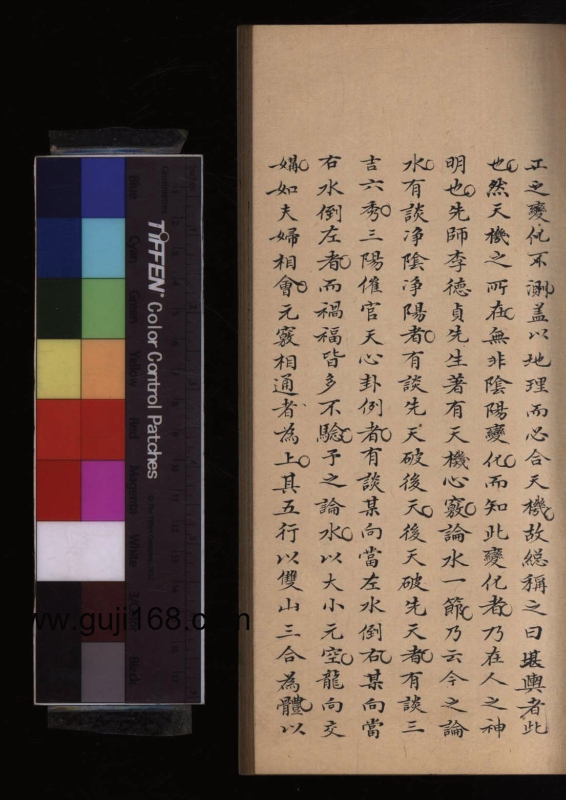 工之變化不測蓋以地理而必合天機故總稱之曰堪輿者此
也然天機之所在無非陰陽變化而知此變化者乃在人之神
明也先師李德貞先生著有天機心竅論水一節乃云今之論
水有談净陰净陽者有談先天破後天後天破先天者有談三
吉六秀三陽催官天心卦倒者有談某向當左水倒右某向當
右水倒左者而禍福皆多不驗予之論水以大小元空龍向交
媾如夫婦相會元竅相通者為上其五行以雙山三合為體以
TIFFEN® Color Control Patches
Blue
Cyan
Green
Yellow
Red
Magenta
White
3/Color
Black
www.guji168.com